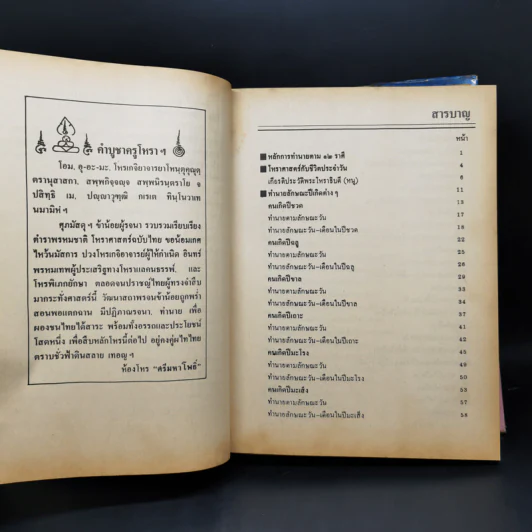 คำบูชาครูโหราฯ
โอม. คุ-อะ-มะ. โหรเกจิอาจารยาโหนฺตุคุณุตฺ
ตรานุสาสกา. สพฺพกิจฺจญฺจ สพฺพนิรนฺตราโย จ
ปสิทฺธิ เม. ปญฺญาวุฑฺฒิ กเรเก ทินฺโนวาเท
นมามิหํ ฯ
ศุภมัสดุ ฯ ข้าน้อยผู้รจนา รวบรวมเรียบเรียง
ตำราพรหมชาติ โหราศาสตร์ฉบับไทย ขอน้อมเกศ
ไหว้นมัสการ ปวงโหรเกจิอาจารย์ผู้ให้กำเนิด อินทร์
พรหมเทพผู้ประเสริฐทางโหราแลคนธรรพ์. และ
โหรพิเภกยักษา ตลอดจนปราชญ์ไทยผู้ทรงจำสืบ
มากระทั่งศาสตร์นี้ วัฒนาสถาพรจนข้าน้อยถูกพร่ำ
สอนพอแตกฉาน มีปฏิภาณรจนา. ทำนาย เพื่อ
ผองชนไทยได้สาระ พร้อมทั้งอรรถและประโยชน์
โสตหนึ่ง เพื่อสืบหลักโหรนี้ต่อไป อยู่คงคู่ผไทไทย
ตราบชั่วฟ้าดินสลาย เทอญ ฯ
ห้องโหร "ศรีมหาโพธิ์"
สารบาญ
หน้า
หลักการทำนายตาม ๑๒ ราศี 1
โหราศาสตร์กับชีวิตประจำวัน 4
เกียรติประวัติพระโหราธิบดี (หนู) 6
ทำนายลักษณะปีเกิดต่าง ๆ 11
คนเกิดปีชวด 13
ทำนายตามลักษณะวัน 17
ทำนายลักษณะวัน-เดือนในปีชวด 18
คนเกิดปีฉลู 22
ทำนายตามลักษณะวัน 25
ทำนายลักษณะวัน-เดือนในปีฉลู 26
คนเกิดปีขาล 29
ทำนายตามลักษณะวัน 33
ทำนายลักษณะวัน-เดือนในปีขาล 34
คนเกิดปีเถาะ 37
ทำนายตามลักษณะวัน 41
ทำนายลักษณะวัน-เดือนในปีเถาะ 42
คนเกิดปีมะโรง 45
ทำนายตามลักษณะวัน 49
ทำนายลักษณะวัน-เดือนในปีมะโรง 50
คนเกิดปีมะเส็ง 53
ทำนายตามลักษณะวัน 57
ทำนายลักษณะวัน-เดือนในปีมะเส็ง 58